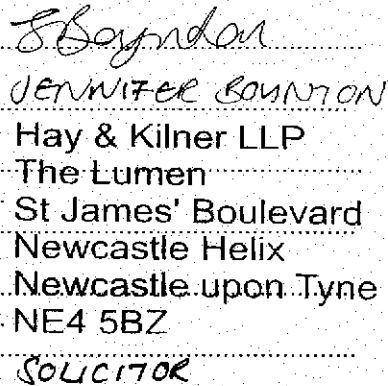 JENNIFER BOYNTON
Hay & Kilner LLP
The Lumen
St James' Boulevard
Newcastle Helix
Newcastle upon Tyne
NE4 5BZ
SOLICITOR